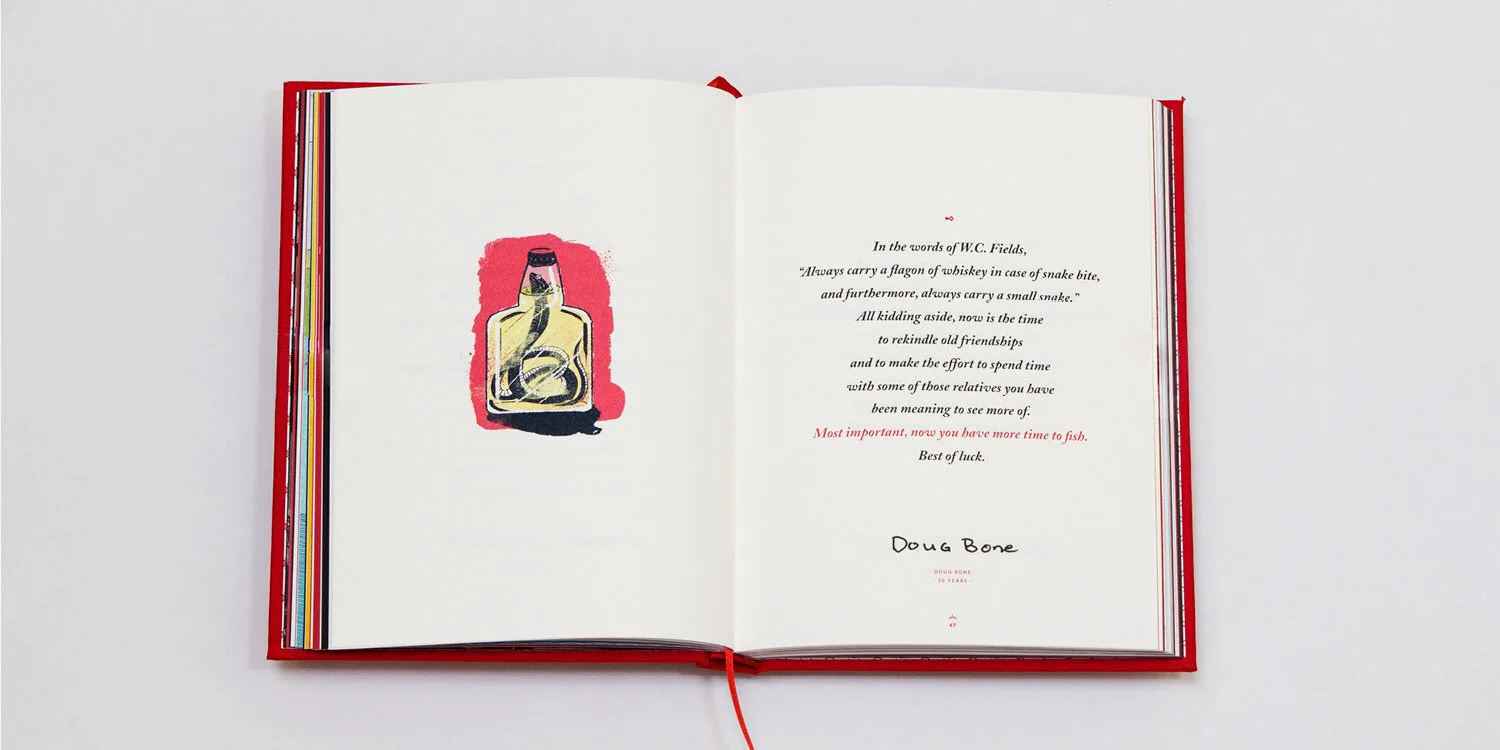 In the words of W.C. Fields,
“Always carry a flagon of whiskey in case of snake bite,
and furthermore, always carry a small snake.”
All kidding aside, now is the time
to rekindle old friendships
and to make the effort to spend time
with some of those relatives you have
been meaning to see more of.
Most important, now you have more time to fish.
Best of luck.
Doug Bone
DOUG BONE
- 36 YEARS -